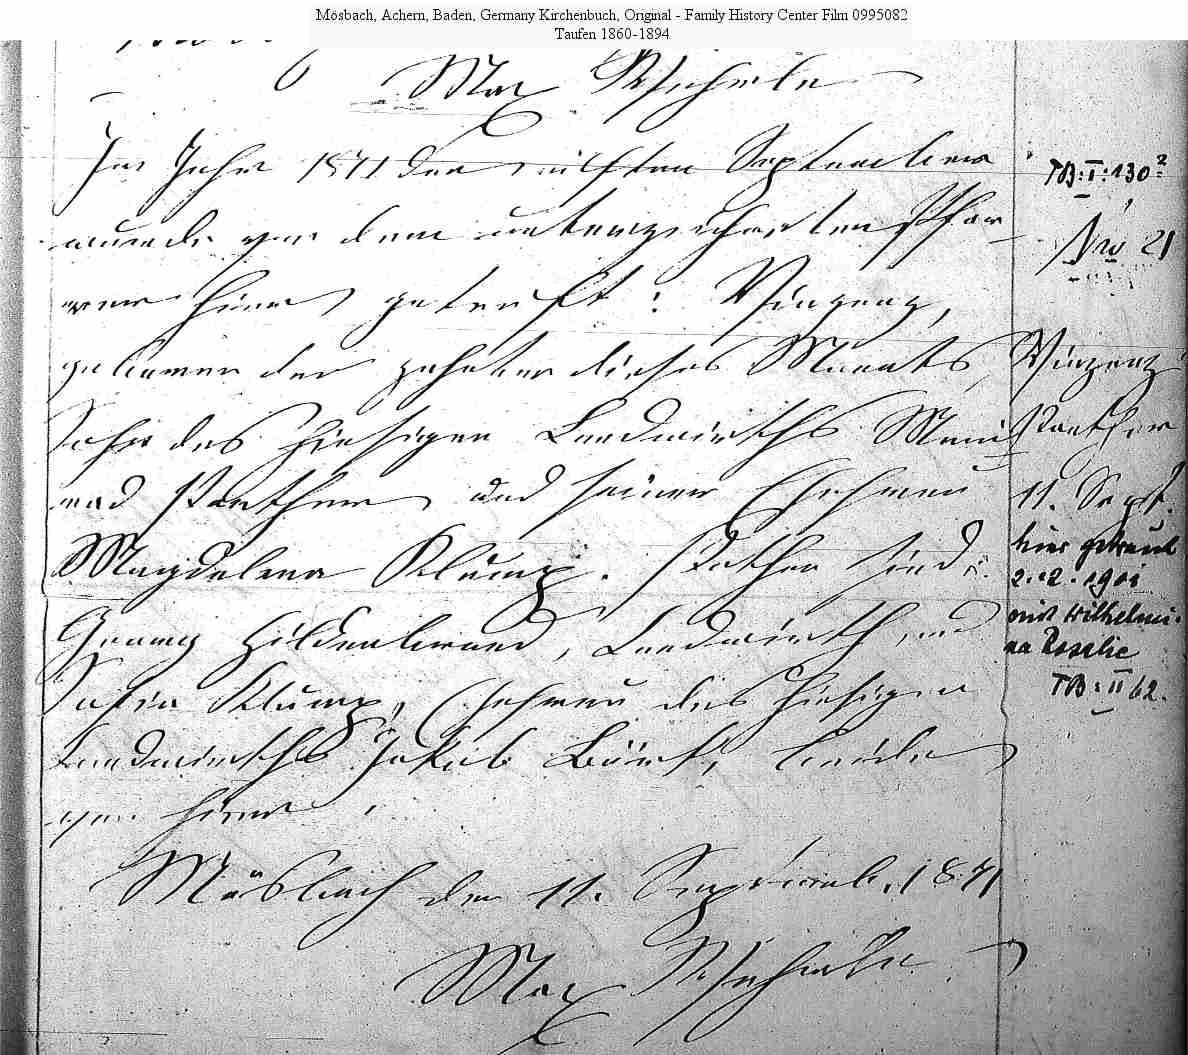 Mösbach, Achern, Baden, Germany Kirchenbuch, Original - Family History Center Film 0995082
Taufen 1860-1894
Max
Im Jahr 1871 den eilften September
wurde von dem unterzeichneten Pfar-
rer hier getauft: Vinzenz,
geboren den zehnten dieses Monats,
Sohn des hiesigen Landwirths Mein-
rad Panther und seiner Ehefrau
Magdalena Klump. Pathen sind:
Georg Hildenbrand, Landwirth, und
Sofia Klump, Ehefrau des hiesigen
Landwirths Jakob beide
von hier.
Mösbach den 11. September 1871
Max
TB: I: 130²
Nro 21
Vinzenz
Panther
11. Sept.
hier getraut
2.12.1901
mit Wilhelmi-
na Rosalie
TB: II 62.